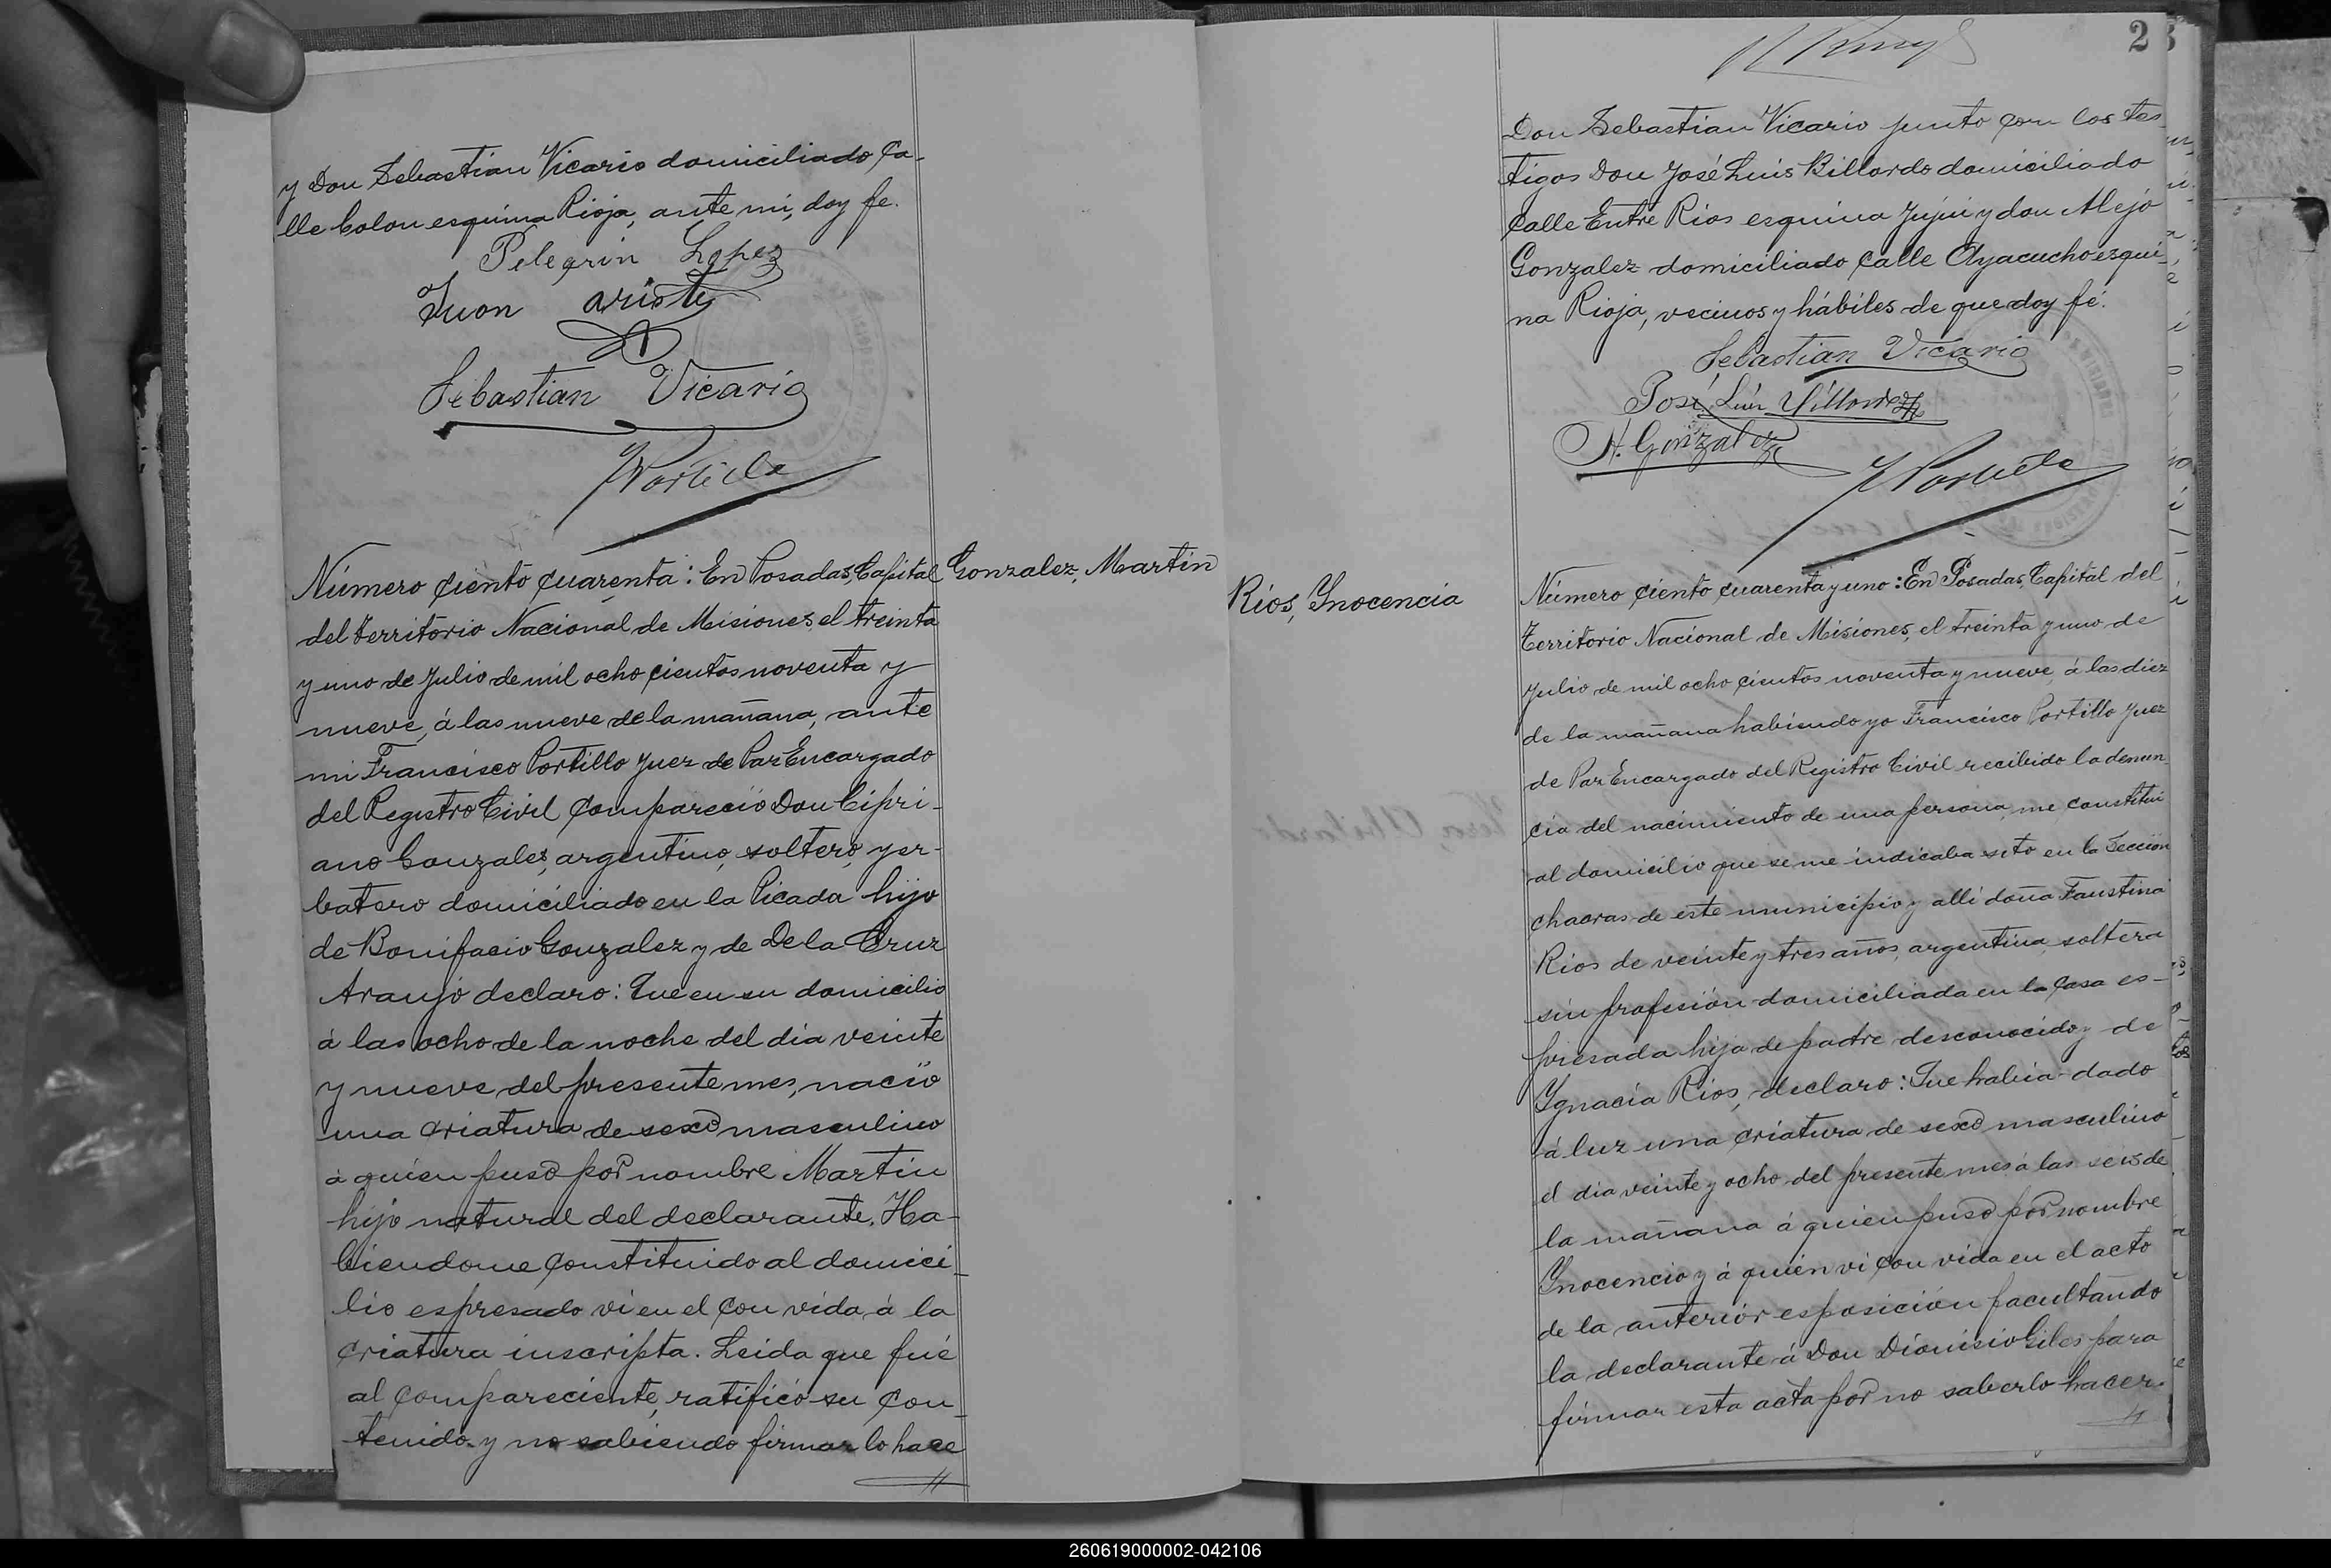 y Don Sebastian Vicario domiciliado ca-
lle Colon esquina Rioja, ante mi, doy fe.
Pelegrin Lopez
Juon aristi
Sebastian Vicario
FPortillo
Número ciento cuarenta: En Posadas, Capital
del Territorio Nacional de Misiones, el treinta
y uno de Julio de mil ocho cientos noventa y
nueve, á las nueve de la mañana, ante
mi Francisco Portillo Juez de Paz Encargado
del Registro Civil compareció Don Cipri-
ano Gonzales, argentino, soltero, yer-
batero domiciliado en la Picada hijo
de Bonifacio Gonzalez y de De la Cruz
Araujo declaro: Que en su domicilio
á las ocho de la noche del dia veinte
y nueve del presente mes, nació
una criatura de sexo masculino
á quien puso por nombre Martin
hijo natural del declarante. Ha-
biendome constituido al domici-
lio espresado vi en el con vida á la
criatura inscripta. Leida que fué
al compareciente, ratificó su con-
tenido y no sabiendo firmar lo hace
Gonzalez, Martin
Rios, Ynocencia
23
Don Sebastian Vicario junto con los tes-
tigos Don José Luis Billordo domiciliado
calle Entre Rios esquina Jujui y don Alejo
Gonzalez domiciliado calle Ayacucho esqui-
na Rioja, vecinos y hábiles de que doy fé.
Sebastian Vicario
José Luis Villordo
A. Gonzalez
FPortillo
Número ciento cuarenta y uno: En Posadas, Capital del
Territorio Nacional de Misiones, el treinta y uno de
Julio de mil ocho cientos noventa y nueve, á las diez
de la mañana habiendo yo Francisco Portillo Juez
de Paz Encargado del Registro Civil recibido la denun
cia del nacimiento de una persona, me constitui
al domicilio que se me indicaba sito en la Sección
chacras de este municipio y alli doña Faustina
Rios de veinte y tres años, argentina, soltera
sin profesión domiciliada en la casa es-
presada hija de padre desconocido y de
Ygnacia Rios, declaro: Que habia dado
á luz una criatura de sexo masculino
el dia veinte y ocho del presente mes á las seis de
la mañana á quien puso por nombre
Ynocencio y á quien vi con vida en el acto
de la anterior esposición facultando
la declarante á Don Dionisio Giles para
firmar esta acta por no saberlo hacer.
260619000002-042106